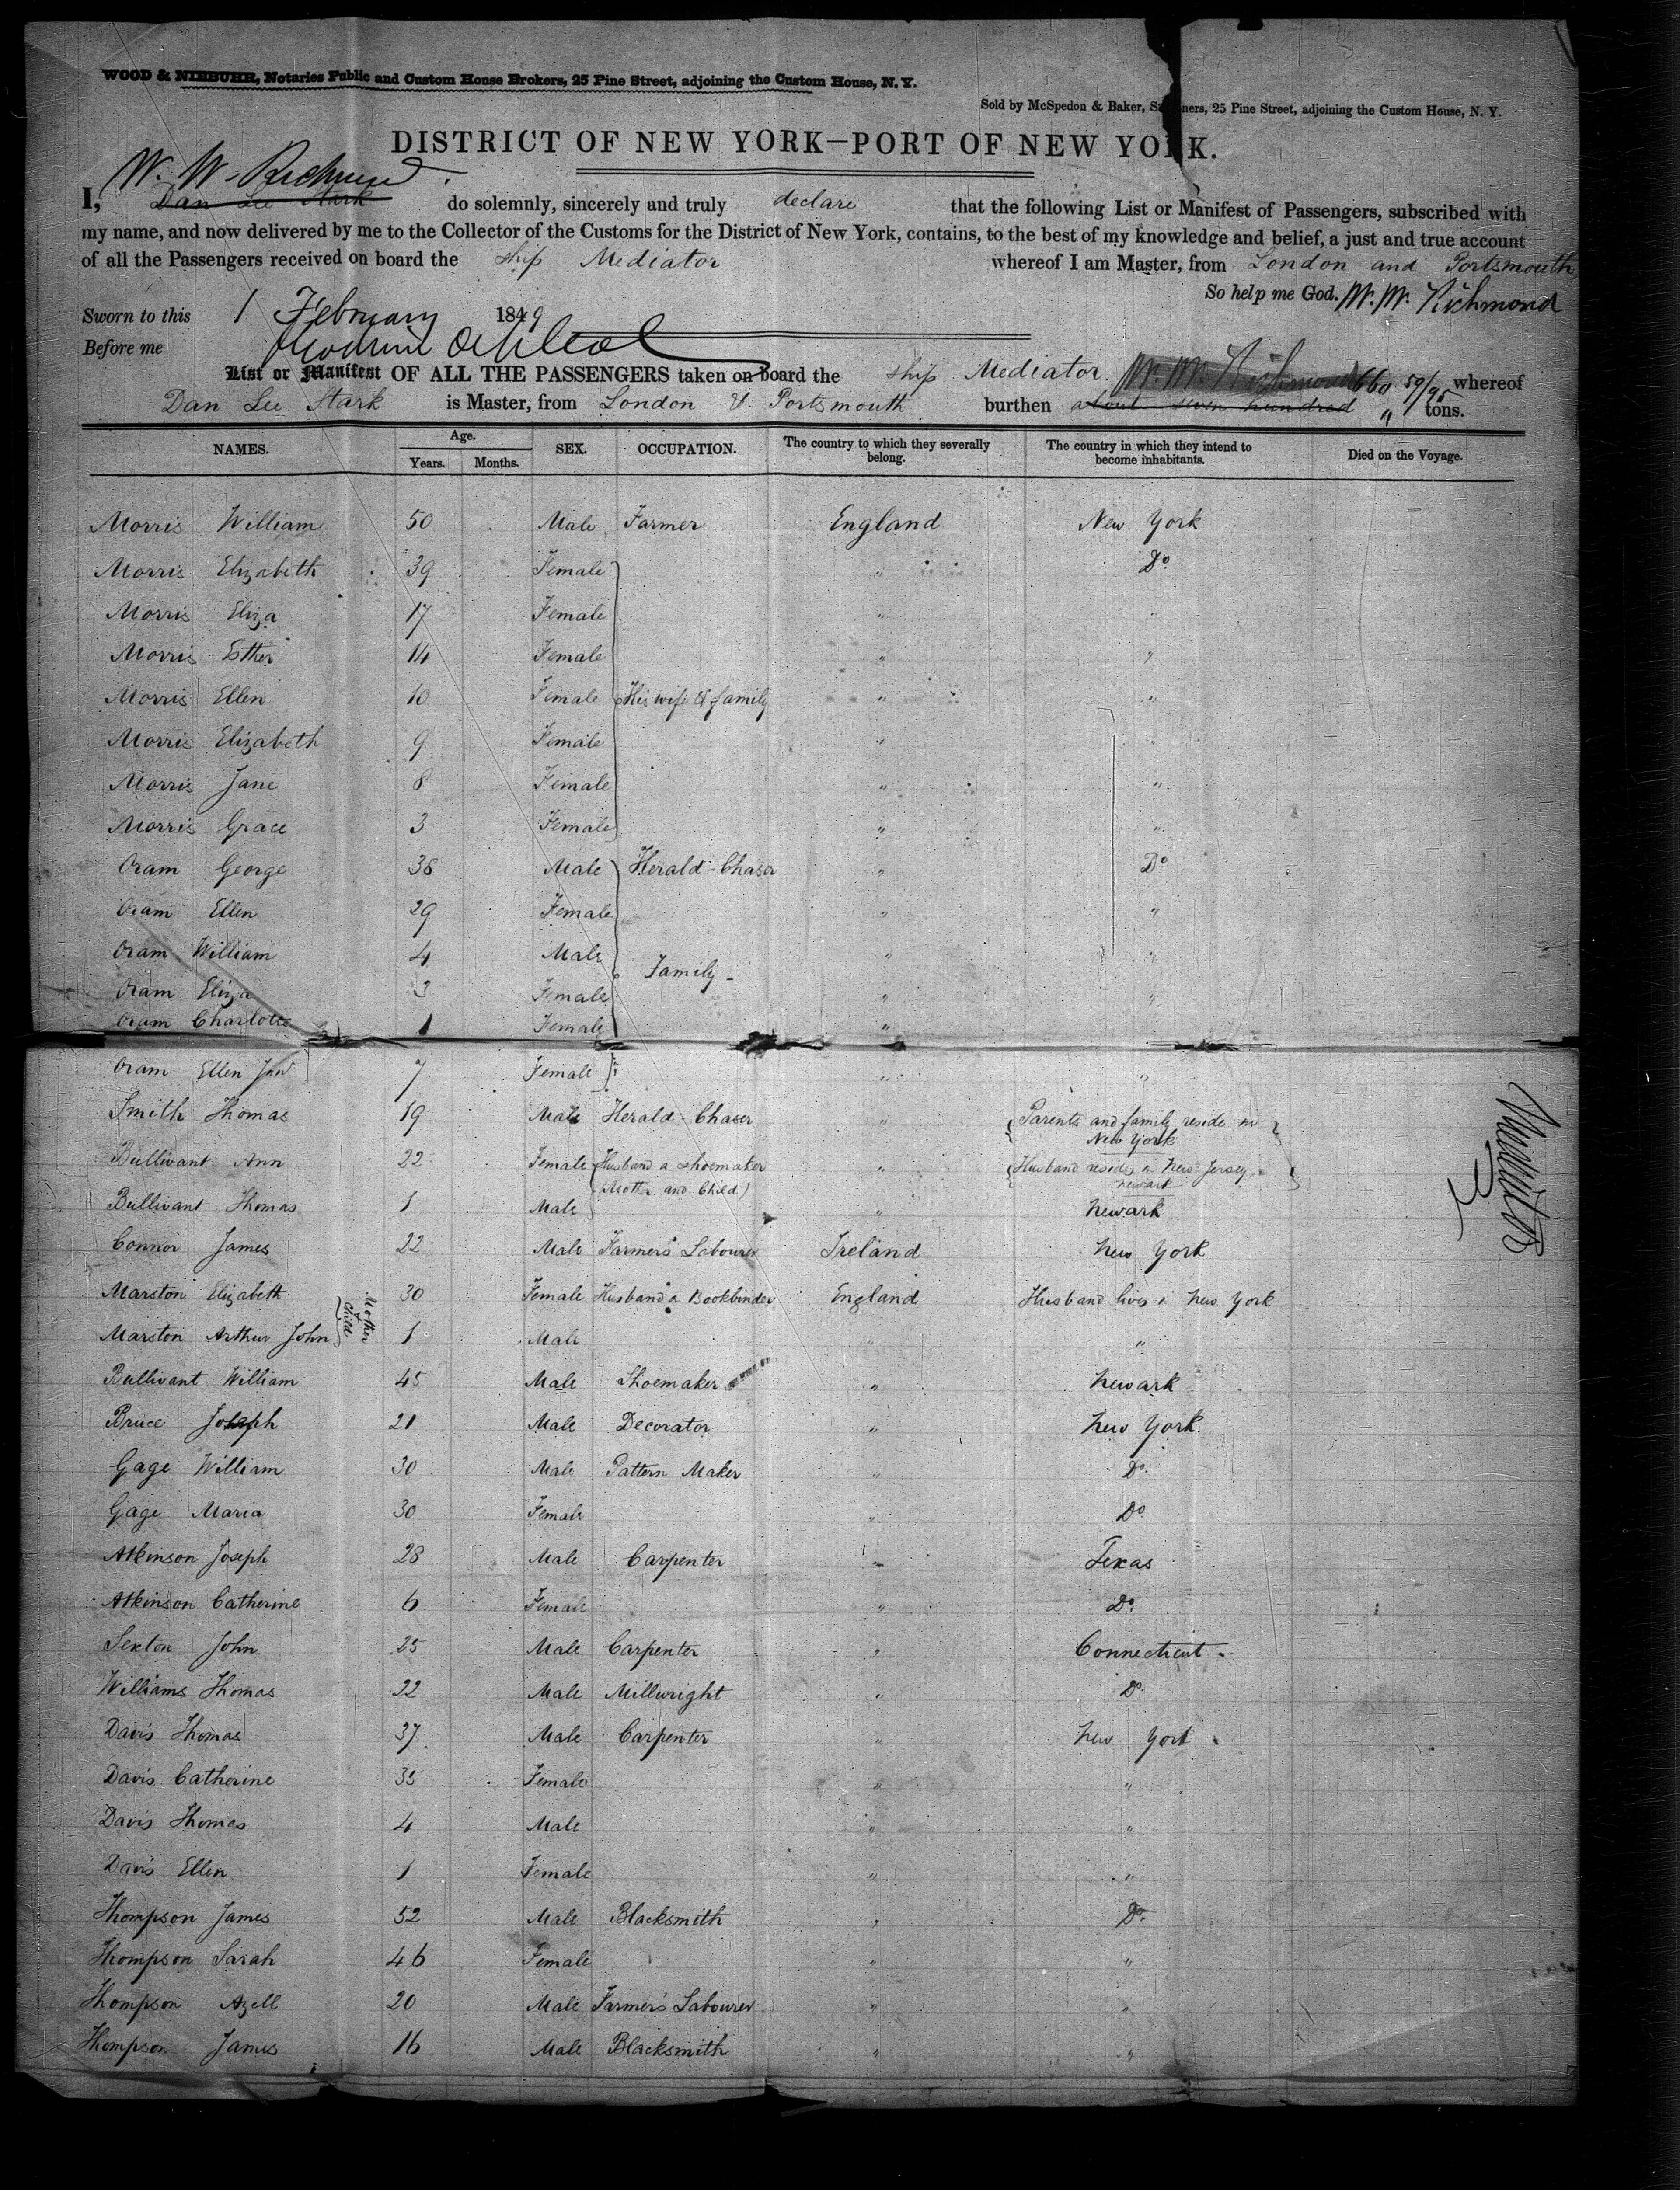 WOOD & NIEBUHR, Notaries Public and Custom House Brokers, 25 Pine Street, adjoining the Custom House, N. Y.
Sold by McSpedon & Baker, Stationers, 25 Pine Street, adjoining the Custom House, N. Y.
DISTRICT OF NEW YORK—PORT OF NEW YORK.
W. W. Richmond
I, Dan Lee Stark do solemnly, sincerely and truly declare that the following List or Manifest of Passengers, subscribed with
my name, and now delivered by me to the Collector of the Customs for the District of New York, contains, to the best of my knowledge and belief, a just and true account
of all the Passengers received on board the ship Mediator whereof I am Master, from London and Portsmouth
So help me God. W. W. Richmond
Sworn to this 1 February 1849
Before me
List or Manifest OF ALL THE PASSENGERS taken on board the ship Mediator W. W. Richmond 660 59/95 whereof
Dan Lee Stark is Master, from London & Portsmouth burthen about seven hundred " tons.
NAMES. Age. Years. Months. SEX. OCCUPATION. The country to which they severally belong. The country in which they intend to become inhabitants. Died on the Voyage.
Morris William 50 Male Farmer England New York
Morris Elizabeth 39 Female " Do
Morris Eliza 17 Female " "
Morris Esther 14 Female " "
Morris Ellen 10 Female His wife & family " "
Morris Elizabeth 9 Female " "
Morris Jane 8 Female " "
Morris Grace 3 Female " "
Oram George 38 Male Herald-Chaser " Do
Oram Ellen 29 Female " "
Oram William 4 Male Family - " "
Oram Eliza 3 Female " "
Oram Charlotte 1 Female "
Oram Ellen Jane 7 Female " "
Smith Thomas 19 Male Herald-Chaser " Parents and family reside in New York
Bullivant Ann 22 Female Husband a Shoemaker (Mother and Child) " Husband resides in New Jersey Newark
Bullivant Thomas 1 Male " Newark
Connor James 22 Male Farmer's Labourer Ireland New York
Marston Elizabeth Mother & Child 30 Female Husband a Bookbinder England Husband lives in New York
Marston Arthur John 1 Male " "
Bullivant William 45 Male Shoemaker " Newark
Bruce Joseph 21 Male Decorator " New York
Gage William 30 Male Pattern Maker " Do.
Gage Maria 30 Female " Do
Atkinson Joseph 28 Male Carpenter " Texas
Atkinson Catherine 6 Female " Do.
Sexton John 25 Male Carpenter " Connecticut
Williams Thomas 22 Male Millwright " Do.
Davis Thomas 37 Male Carpenter " New York
Davis Catherine 35 Female " "
Davis Thomas 4 Male " "
Davis Ellen 1 Female " "
Thompson James 52 Male Blacksmith " Do.
Thompson Sarah 46 Female " "
Thompson Azell 20 Male Farmer's Labourer " "
Thompson James 16 Male Blacksmith " "